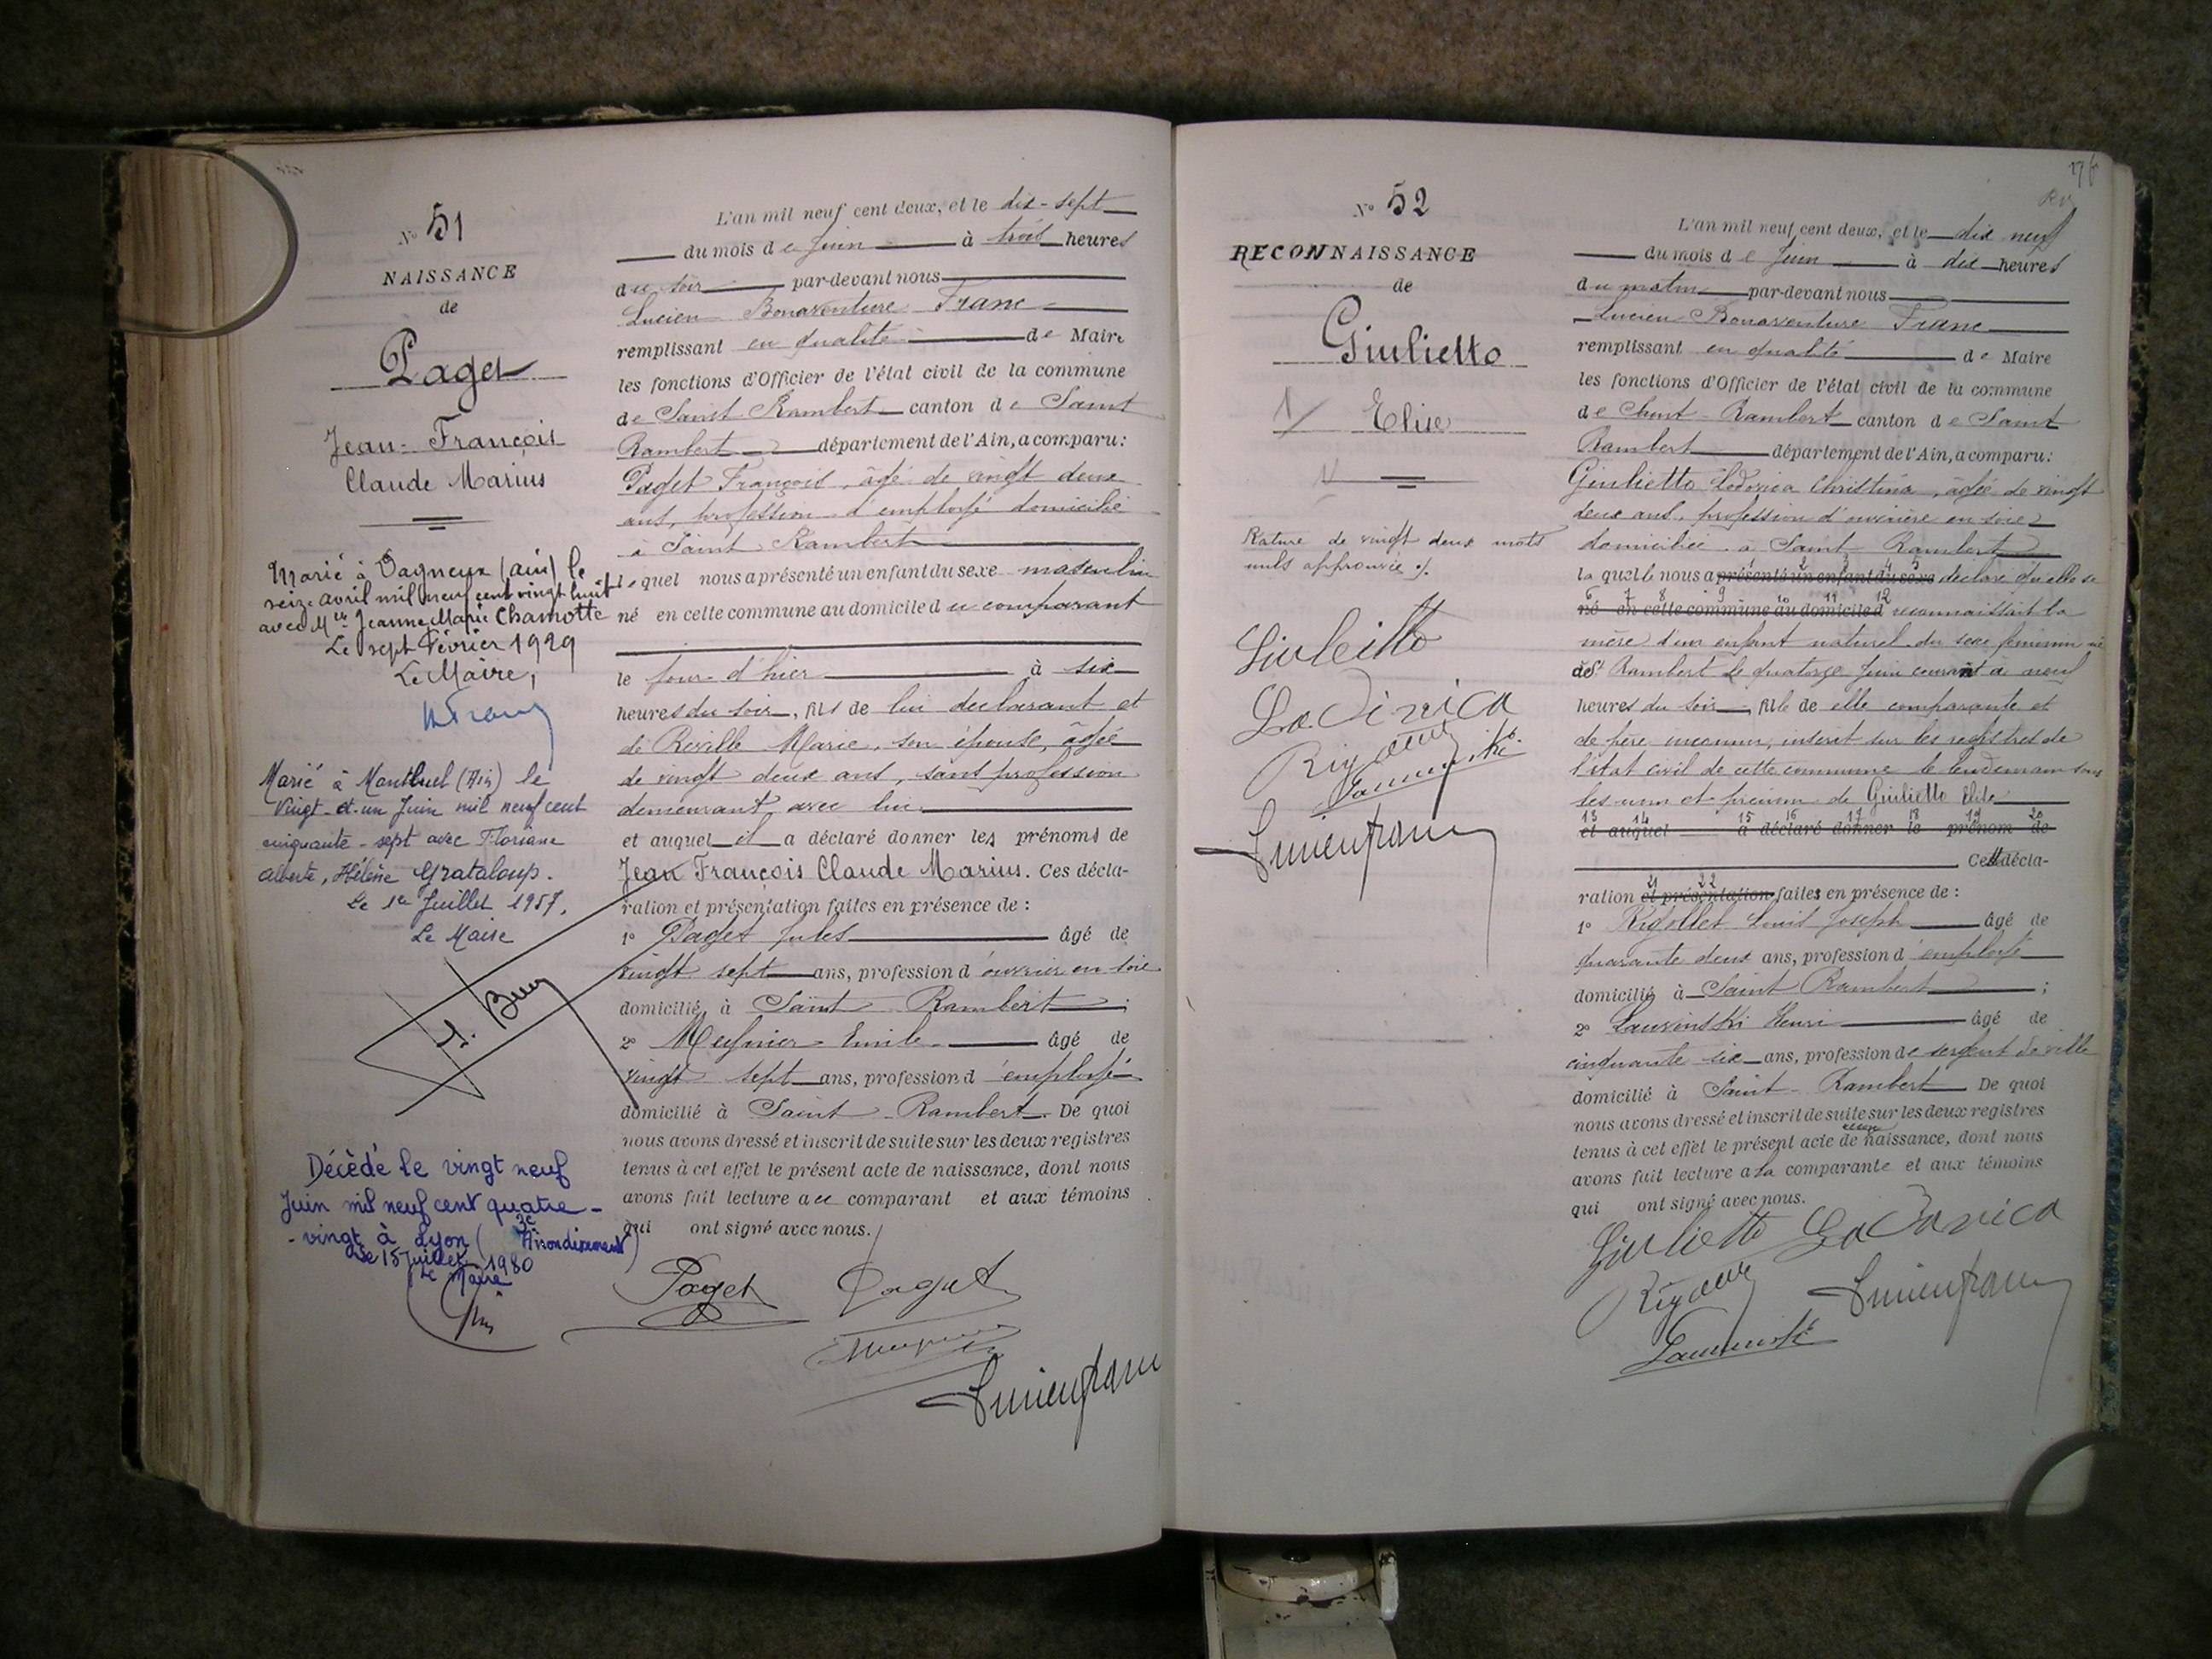 N° 51
NAISSANCE
de
Paget
Jean-François
Claude Marius
Marié à Dagneux (ain) le
seize avril mil neuf cent vingt huit
avec Mlle Jeanne Marie Chamotte
Le sept Février 1929
Le Maire,
Marié à Montluel (Ain) le
Vingt-et-un Juin mil neuf cent
cinquante-sept avec Floriane
Alberte, Hélène Grataloup.
Le 1er Juillet 1957.
Le Maire
Décédé le vingt neuf
Juin mil neuf cent quatre-
-vingt à Lyon (3e Arrondissement)
Le 15 Juillet 1980
Le Maire
L'an mil neuf cent deux, et le dix-sept
du mois de Juin à trois heures
du soir par-devant nous
Lucien Bonaventure Franc
remplissant en qualité de Maire
les fonctions d'Officier de l'état civil de la commune
de Saint Rambert canton de Saint
Rambert département de l'Ain, a comparu:
Paget François, âgé de vingt deux
ans, profession d'employé domicilié
à Saint Rambert
lequel nous a présenté un enfant du sexe masculin
né en cette commune au domicile du comparant
le jour d'hier à six
heures du soir, fils de lui déclarant et
de Reville Marie, son épouse, âgée
de vingt deux ans, sans profession
demeurant avec lui
et auquel il a déclaré donner les prénoms de
Jean François Claude Marius. Ces décla-
ration et présentation faites en présence de :
1° Paget Jules âgé de
vingt sept ans, profession d'ouvrier en soie
domicilié à Saint Rambert ;
2° Meunier Emile âgé de
vingt sept ans, profession d'employé
domicilié à Saint Rambert. De quoi
nous avons dressé et inscrit de suite sur les deux registres
tenus à cet effet le présent acte de naissance, dont nous
avons fait lecture au comparant et aux témoins
qui ont signé avec nous.
Paget Paget
Lucien franc
N° 52
RECONNAISSANCE
de
Giulietto
Elise
Rature de vingt deux mots
nuls approuvée
Giulietto
Lodovica
L'an mil neuf cent deux, et le dix neuf
du mois de Juin à dix heures
du matin par-devant nous
Lucien Bonaventure Franc
remplissant en qualité de Maire
les fonctions d'Officier de l'état civil de la commune
de Saint-Rambert canton de Saint
Rambert département de l'Ain, a comparu:
Giulietto Lodovica Christina, âgée de vingt
deux ans, profession d'ouvrière en soie
domiciliée à Saint Rambert
la quelle nous a présenté un enfant du sexe déclaré qu'elle se
né en cette commune au domicile d reconnaissait la
mère d'un enfant naturel du sexe féminin né
à St Rambert le quatorze Juin courant à neuf
heures du soir, fille de elle comparante et
de père inconnu, inscrit sur les registres de
l'état civil de cette commune le lendemain sous
les nom et prénom de Giulietto Elise
et auquel a déclaré donner le prénom de
Cette décla-
ration et présentation faites en présence de :
1° Rigollet Louis Joseph âgé de
quarante deux ans, profession d'employé
domicilié à Saint Rambert ;
2° Henri âgé de
cinquante six ans, profession de sergent de ville
domicilié à Saint-Rambert De quoi
nous avons dressé et inscrit de suite sur les deux registres
tenus à cet effet le présent acte de naissance, dont nous
avons fait lecture à la comparante et aux témoins
qui ont signé avec nous.
Giulietto Lodovica
Lucien franc